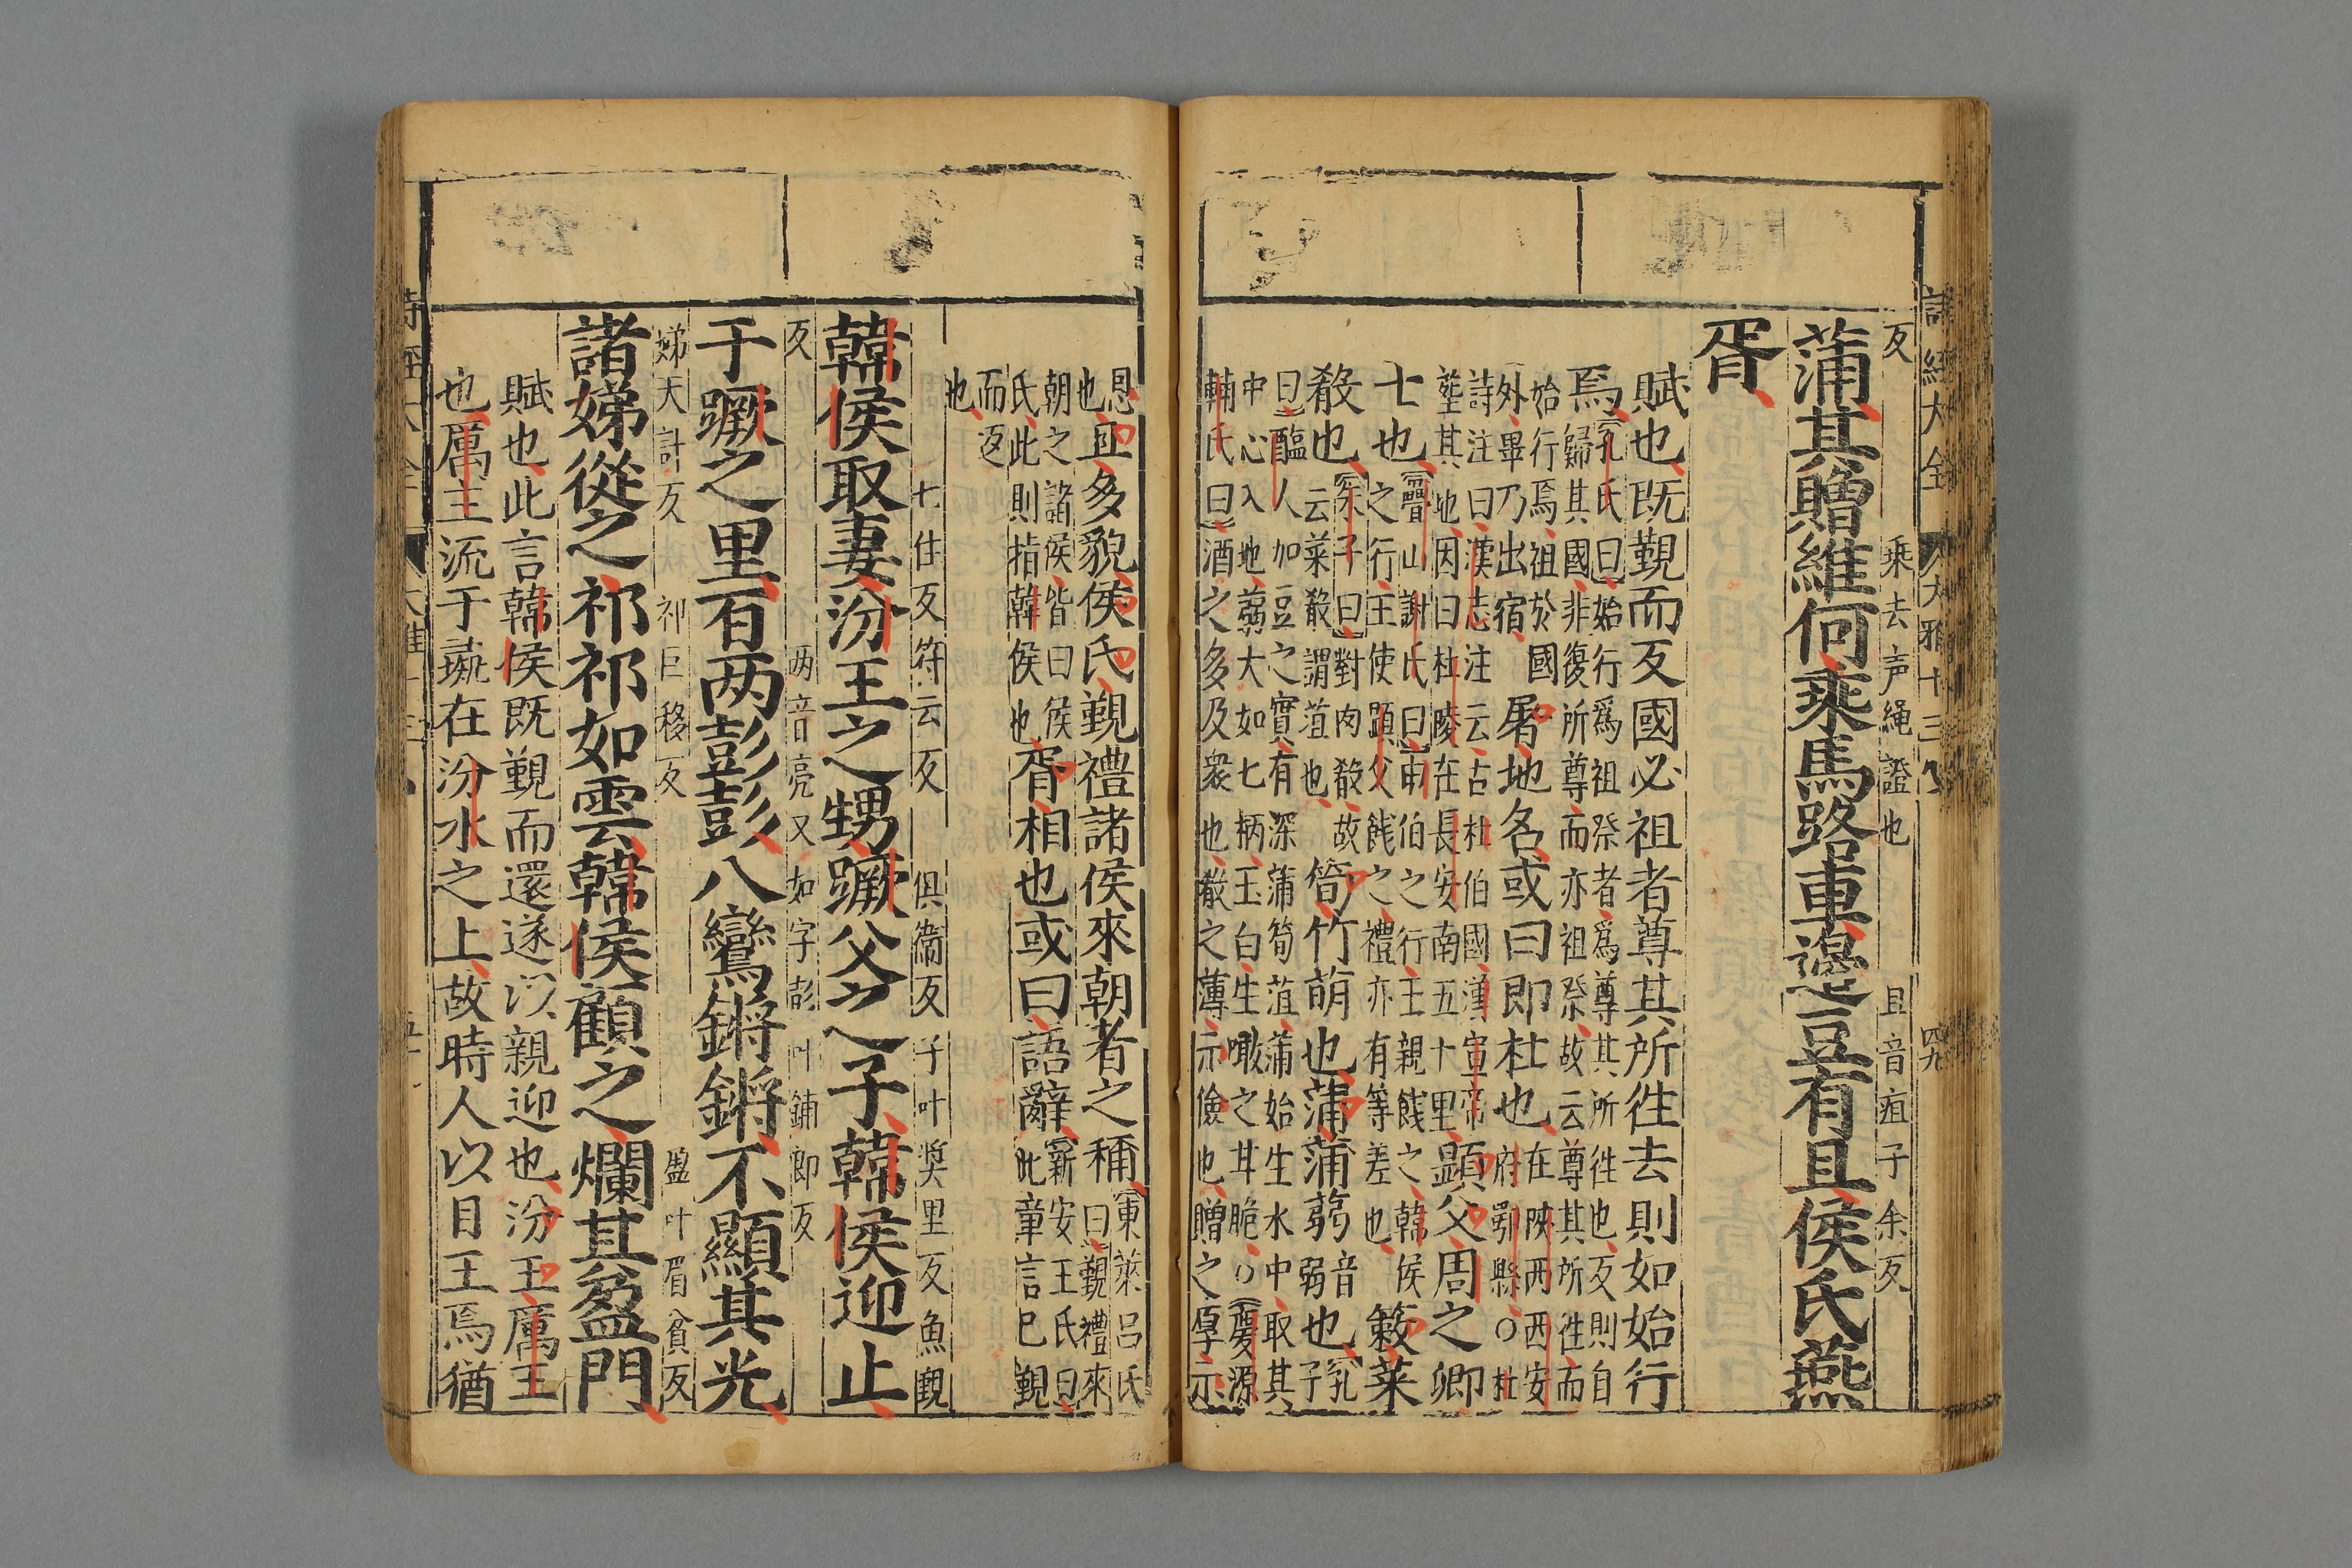 詩經大全 大雅十三 四九
反 乘去声繩證也 且音疽子余反
蒲其贈維何乘馬路車籩豆有且侯氏燕
胥
賦也既覲而反國必祖者尊其所徃去則如始行
焉孔氏曰始行爲祖祭者爲尊其所徃也反則自
歸其國非復所尊而亦祖祭故云尊其所徃而
始行焉祖於國
外畢乃出宿 屠地名或曰即杜也在陝西西安
府鄠縣○杜
詩注曰漢志注云古杜伯國漢宣帝
塟其地因曰杜陵在長安南五十里 顯父周之卿
士也疊山謝氏曰申伯之行王親餞之韓侯
之行王使顯父餞之禮亦有等差也 蔌菜
殽也朱子曰對肉殽故
云菜殽謂菹也 筍竹萌也蒲蒲蒻音
弱也孔子
曰醢人加豆之實有深蒲筍菹蒲始生水中取其
中心入地蒻大如匕柄玉白生噉之甘脆○慶源
輔氏曰酒之多及衆也殽之薄示儉也贈之厚示
恩
也且多貌侯氏覲禮諸侯來朝者之稱東萊呂氏
曰覲禮來
朝之諸侯皆曰侯
氏此則指韓侯也 胥相也或曰語辭新安王氏曰
此章言已覲
而返
也
七住反符云反 俱衞反 子叶奬里反魚覲
韓侯取妻汾王之甥蹶父之子韓侯迎止
反 两音亮又如字彭叶鋪郎反
于蹶之里百两彭彭八鸞鏘鏘不顯其光
娣大計反 祁巨移反 盈叶眉貧反
諸娣從之祁祁如雲韓侯顧之爛其盈門
賦也此言韓侯既覲而還遂以親迎也汾王厲王
也厲王流于彘在汾水之上故時人以目王焉猶